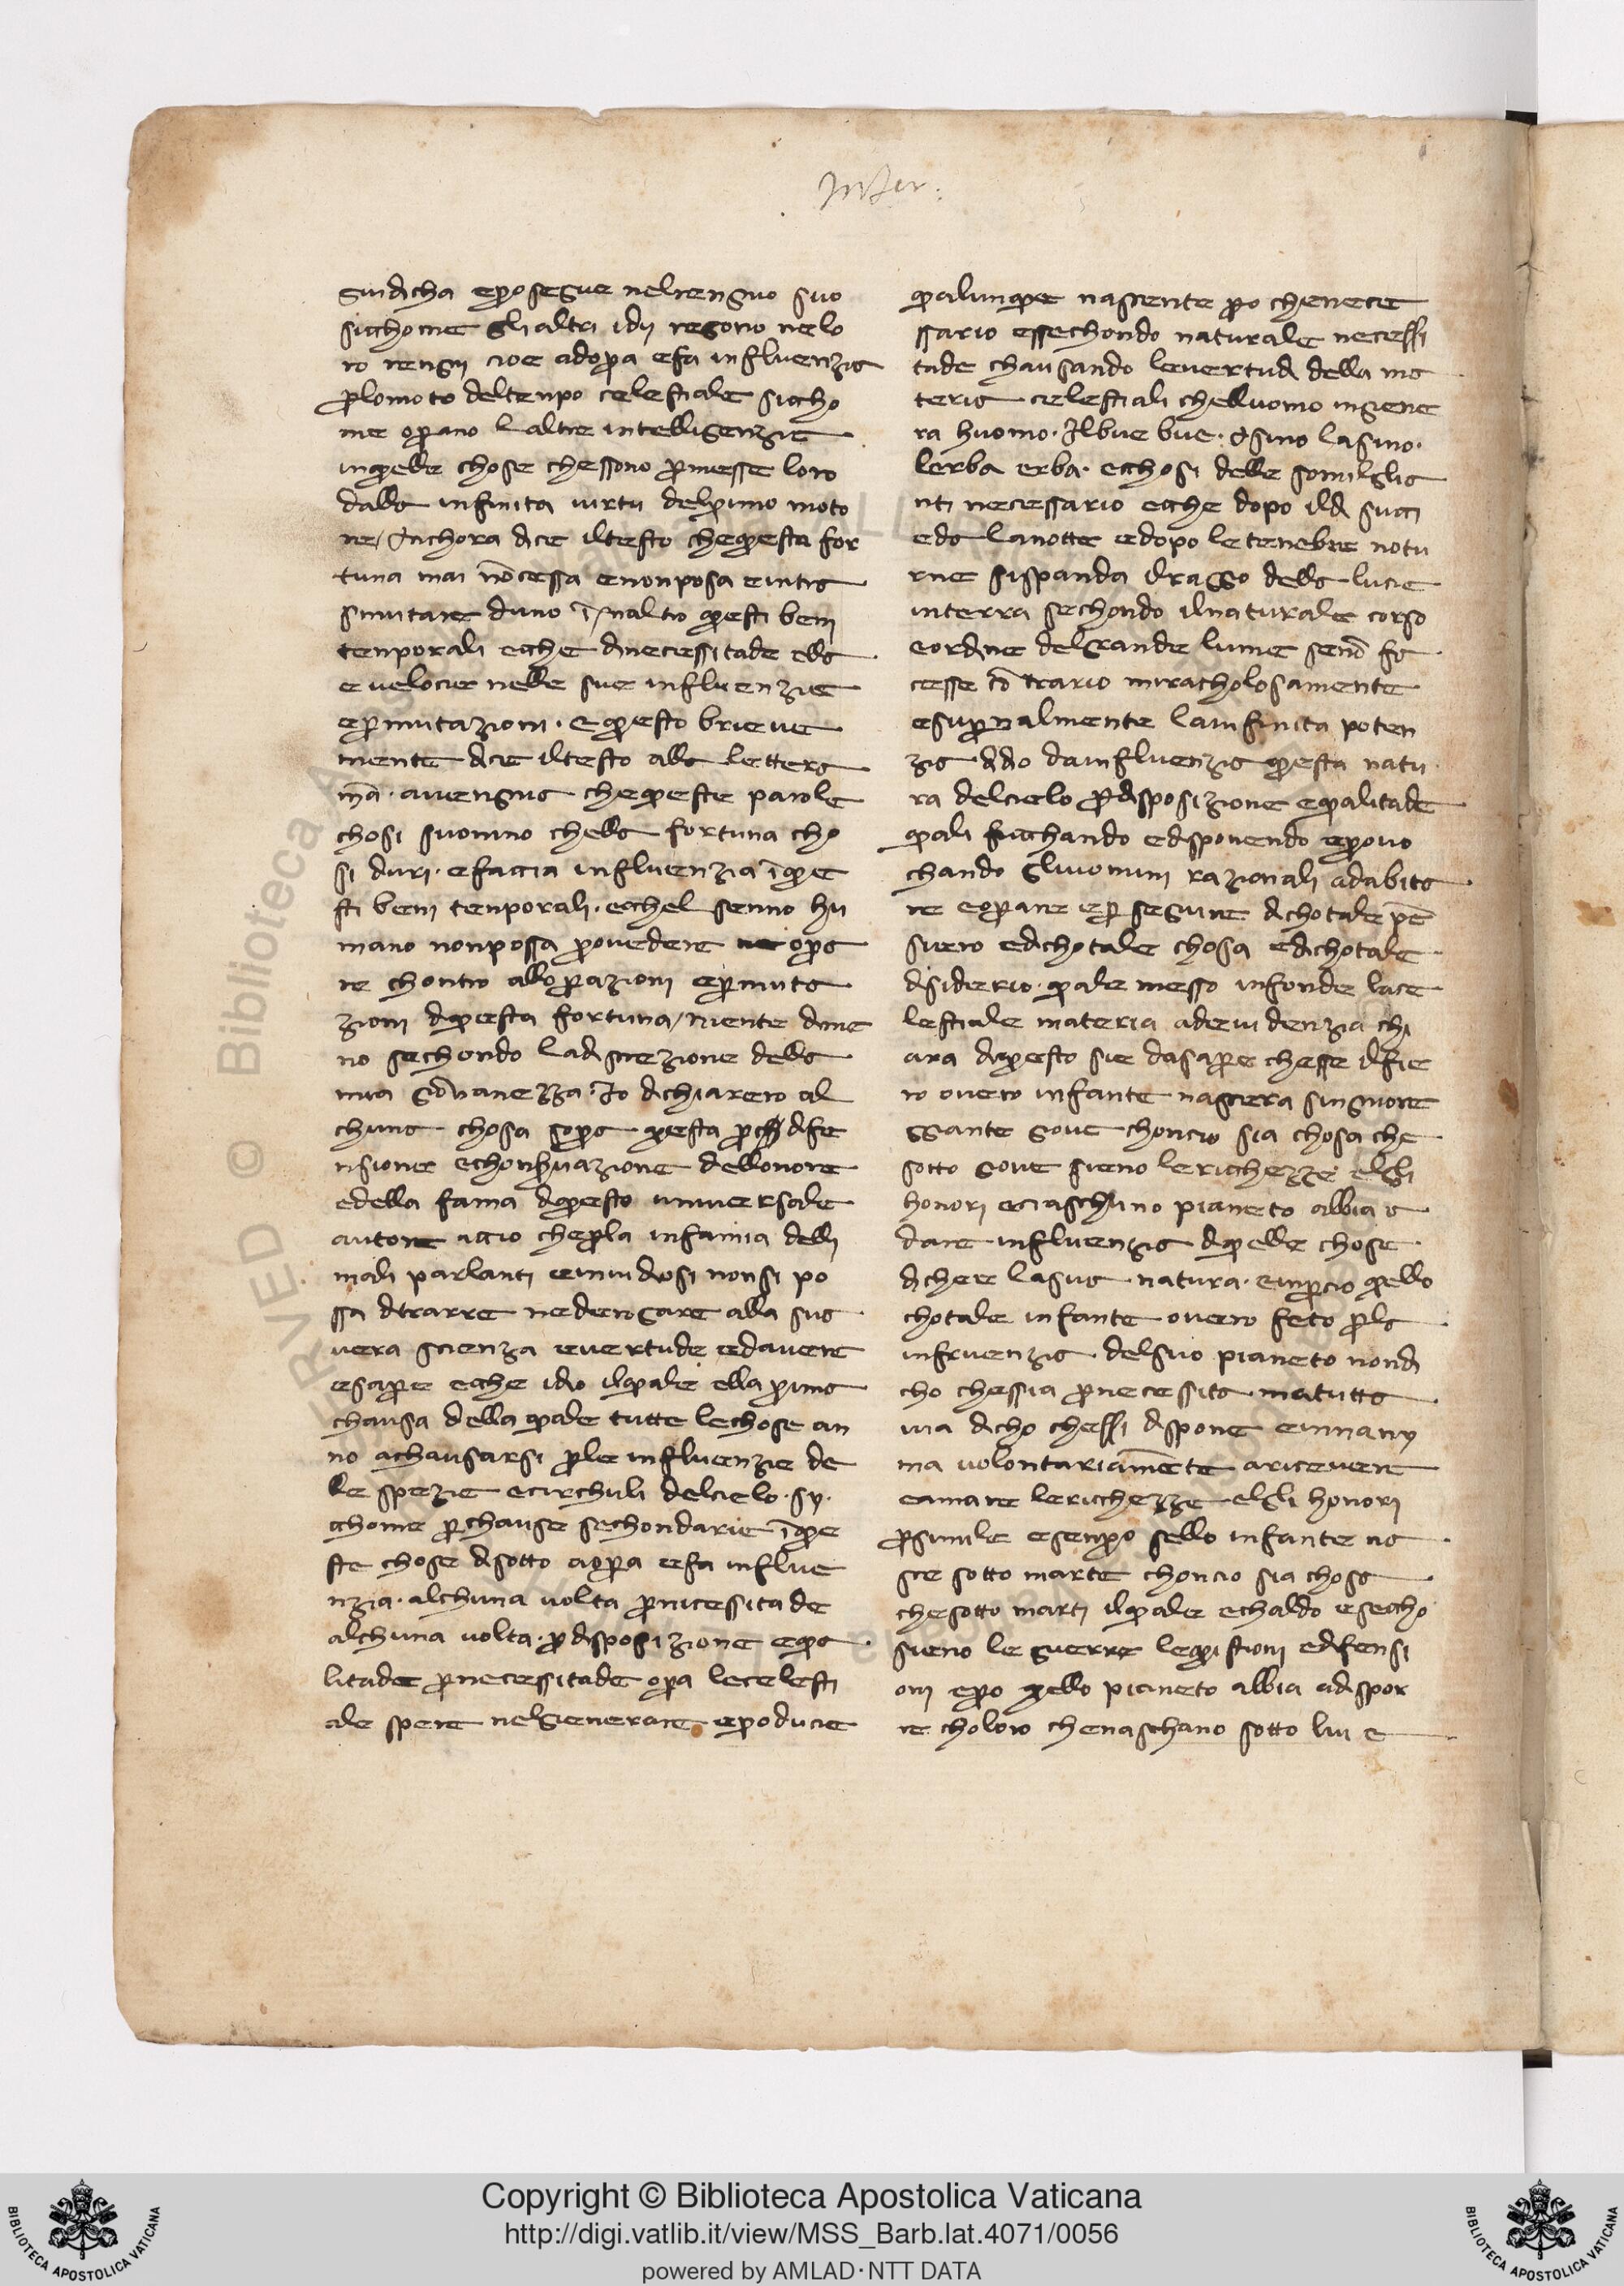 Infer.
giudicha eꝓseghue nelrengnio suo
sicchome gli altri idij regono nelo
ro rengni cioe adopa efa influenzia
ꝑlomoto deltenpo celestiale siccho
me opano laltre intelligenzie
inquelle chose chessono ꝑmesse loro
dalla infinita virtu delprimo moto
re / Anchora dice iltesto chequesta for
tuna mai nōcessa enonposa
simutare duno ī naltro questi beni
tenporali ecche dinecessitade ella
e veloce nelle sue influenzie
eꝑmutazioni · Equesto brieve
mente dice iltesto alla lettera
ma · avengnia chequeste parole
chosi suonino chella fortuna cho
si duri · efaccia influenzia īque
sti beni tenporali · ecchel senno hu
mano nonpossa ꝓvedere opa
re chontro allopazioni eꝑmuta
zioni diquesta fortuna / niente dime
no sechondo ladiscrezione della
mia giovanezza · Io dichiarero al
chuna chosa sopra questa ꝑ difе
nsione echonservazione dellonore
edella fama diquesto universale
autore accio cheꝑla infamia delli
mali parlanti einvidiosi nonsi po
ssa ditrarre nederogare alla sua
vera scienza evertude edavere
esapere ecche idio ilquale ella prima
chausa della quale tutte lechose an
no achausarsi ꝑle influenzie de
lle spezie ecirchuli delcielo · sy
cchome ꝑchause sechondarie īque
ste chose disotto aopa efa influe
nzia · alchuna volta ꝑnicessitade
alchuna volta · ꝑdisposizione equa
litade ꝑnecessitade opa lecelesti
ale spere nelgienerare eꝓducie
qualunque nascente ꝑo chenece
ssario essechondo naturale necessi
tade chausando levertudi della ma
teria celestiali chelluomo ingiene
ra huomo · Ilbue bue · Asino lasino ·
lerba erba · ecchosi delle somiglia
nti necessario ecche dopo ildi succi
eda lanotte edopo letenebre notu
rne sispanda ilraggio della lucie
interra sechondo ilnaturale corso
eordine delgrande lume senō fa
cesse cōtrario miracholosamente
esupnalmente lainfinita poten
zia didio dainfluenzia questa natu
ra delcielo ꝑdisposizione equalitade
quali ficchando edisponendo eꝓvo
chando gliuomini razionali adabita
re eopare eꝑseguire dichotale pē
siero edichotale chosa edichotale
disiderio · quale messo infonde lace
lestiale materia adevidenzia chi
ara diquesto sie dasapere chesse ilfie
to overo infante nascera singnore
ggiante giove choncio sia chosa che
sotto giove sieno lericchezze elgli
honori eciaschuno pianeto abbia a
dare influenzia diquelle chose
dichee lasua natura · einꝑcio quello
chotale infante overo feto ꝑla
infruenzia delsuo pianeto nondi
cho chessia ꝑnecessita matutta
via dicho chessi dispone einnany
ma volontariamēte aricevere
eamare lericchezze elgli honori
ꝑsimile esenpro sello infante na
sce sotto marte choncio sia chosa
chesotto marti ilquale echaldo esecho
sieno le guerre lequistioni edifensi
oni eꝑo quello pianeto abbia adispor
re choloro chenaschano sotto lui e
Copyright © Biblioteca Apostolica Vaticana
http://digi.vatlib.it/view/MSS_Barb.lat.4071/0056
powered by AMLAD·NTT DATA
BIBLIOTECA APOSTOLICA VATICANA
BIBLIOTECA APOSTOLICA VATICANA